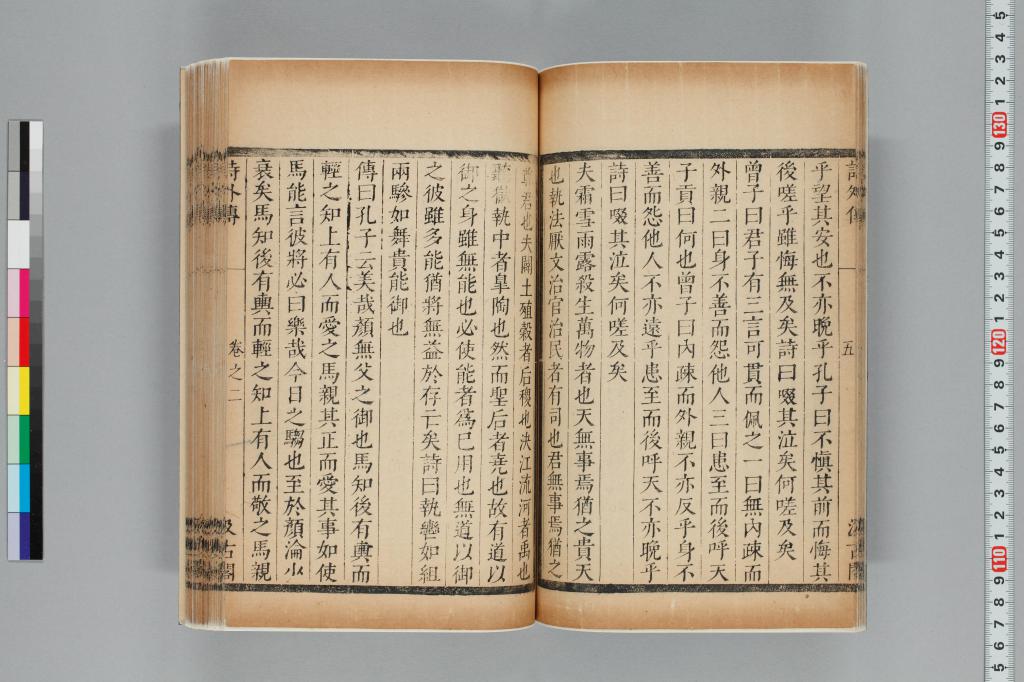 乎望其安也不亦晚乎孔子曰不愼其前而悔其
後嗟乎雖悔無及矣詩曰啜其泣矣何嗟及矣
曾子曰君子有三言可貫而佩之一曰無內疎而
外親二曰身不善而怨他人三曰患至而後呼天
子貢曰何也曾子曰內疎而外親不亦反乎身不
善而怨他人不亦遠乎患至而後呼天不亦晚乎
詩曰啜其泣矣何嗟及矣
夫霜雪雨露殺生萬物者也天無事焉猶之貴天
也執法厭文治官治民者有司也君無事焉猶之
尊君也夫闢土殖穀者后稷也決江流河者禹也
聽獄執中者皐陶也然而聖后者堯也故有道以
御之身雖無能也必使能者爲已用也無道以御
之彼雖多能猶將無益於存亡矣詩曰執轡如組
兩驂如舞貴能御也
傳曰孔子云美哉顏無父之御也馬知後有輿而
輕之知上有人而愛之馬親其正而愛其事如使
馬能言彼將必曰樂哉今日之騶也至於顏淪少
衰矣馬知後有輿而輕之知上有人而敬之馬親
詩外傳
卷之二
汲古閣
詩外傳
五
汲古閣
130
120
110